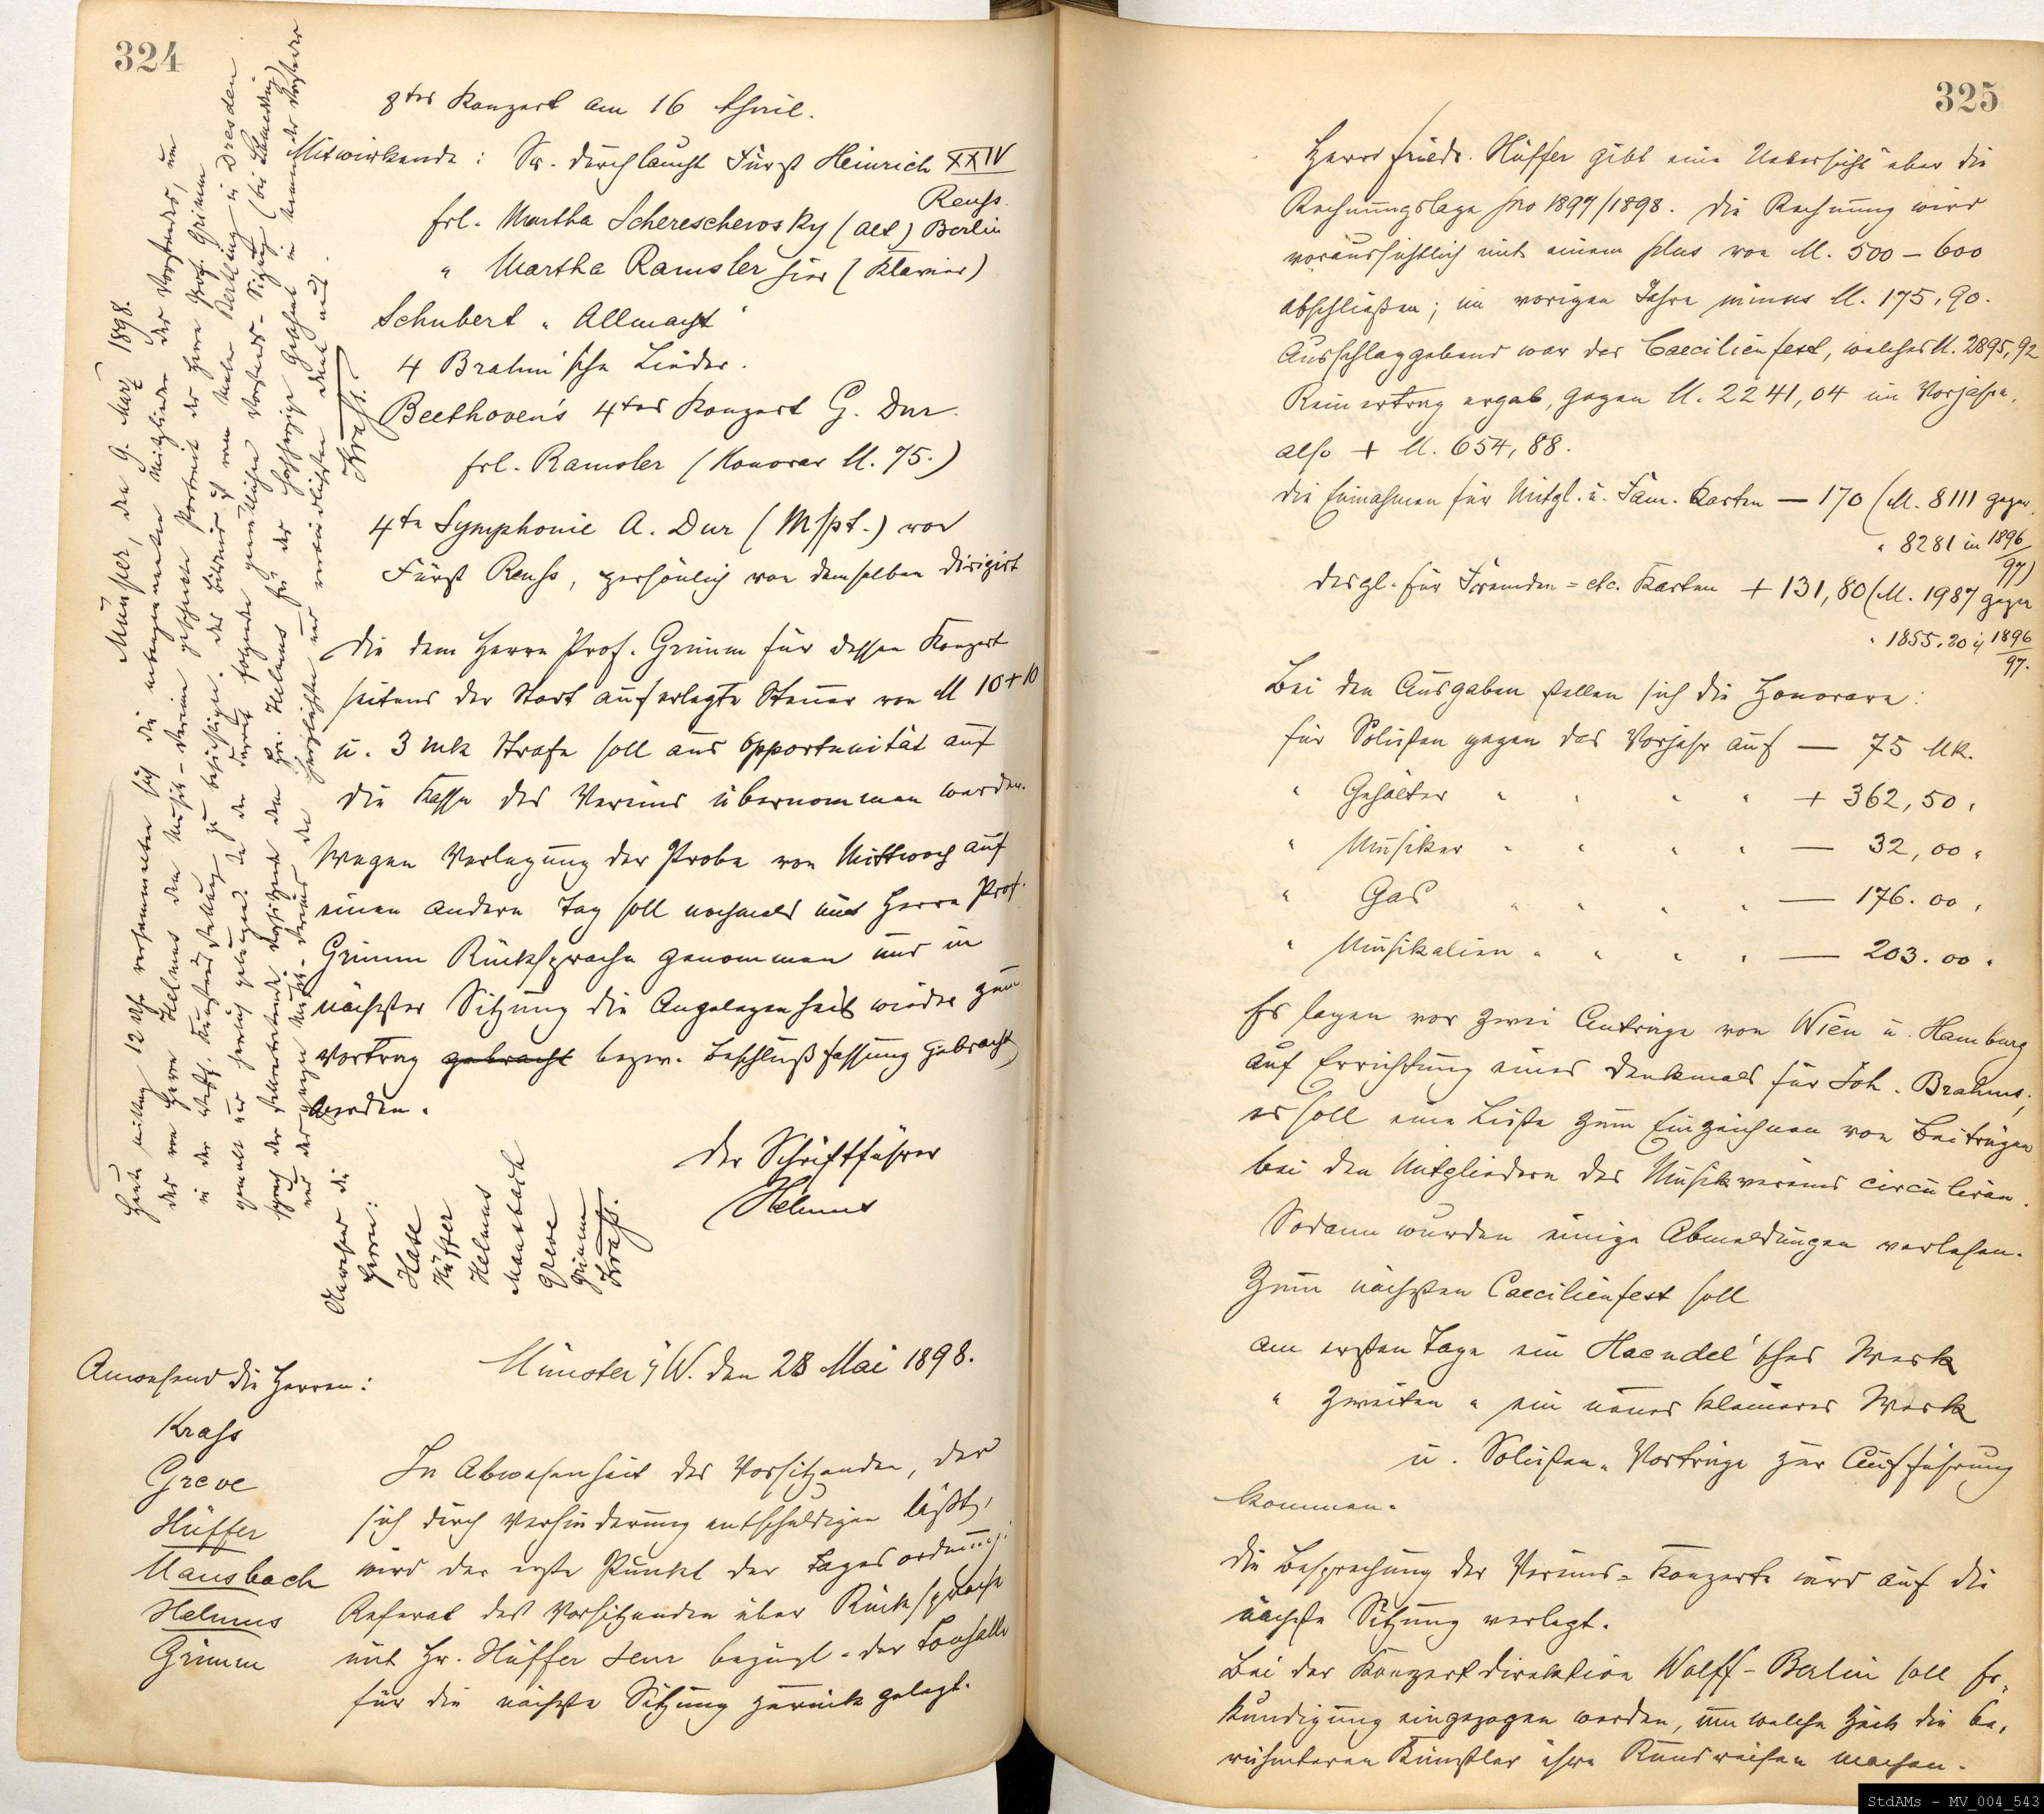 324
8tes Konzert am 16 April.
Mitwirkende: Sr. Durchlaucht Fürst Heinrich XXIV
Reuss.
Frl. Martha Schereschewsky (Alt) Berlin
" Martha Ramsler hier (Klavier)
Schubert "Allmacht"
4 Brahm'sche Lieder.
Beethoven's 4tes Konzert G. Dur.
Frl. Ramsler (Honorar M. 75.)
4te Symphonie A. Dur (Mspt.) von
Fürst Reuss, persönlich von demselben dirigirt
Die dem Herrn Prof. Grimm für dessen Konzert
seitens der Stadt auferlegte Steuer von M 10+10
u. 3 Mk Strafe soll aus Opportunität auf
die Kasse des Vereins übernommen werden.
Wegen Verlegung der Probe von Mittwoch auf
einen andern Tag soll nochmals mit Herrn Prof.
Grimm Rücksprache genommen und in
nächster Sitzung die Angelegenheit wieder zum
Vortrag gebracht bezw. Beschlußfassung gebracht
werden.
Der Schriftführer
Helmus
Münster, den 9. März 1898.
Heute mittag 12 Uhr versammelten sich die unterzeichneten Mitglieder des Vorstandes, um
das von Herrn Helmus dem Musik-Verein geschenkte Portrait des Herrn Prof. Grimm
in der Westf. Kunstausstellung zu besichtigen. Das Bildnis ist vom Maler in Dresden
gemalt und herrlich gelungen. In der darauf folgenden gemütlichen Vorstands-Sitzung
sprach der stellvertretende Vorsitzende dem Hrn. Helmus für das hochherzige Geschenk im Namen des Vorstandes
und des ganzen Musik-Vereins den herzlichsten und verbindlichsten Dank aus.
Krass.
Anwesend die
Herren:
Hase
Hüffer
Helmus
Mausbach
Greve
Grimm
Krass.
Münster i/W. den 28 Mai 1898.
Anwesend die Herren:
Krass
Greve
Hüffer
Mausbach
Helmus
Grimm
In Abwesenheit des Vorsitzenden, der
sich durch Verhinderung entschuldigen läßt,
wird der erste Punkt der Tagesordnung:
Referat des Vorsitzenden über Rücksprache
mit Hr. Hüffer senr bezügl. der Tonhalle
für die nächste Sitzung zurück gelegt.
325
Herr Friedr. Hüffer gibt eine Uebersicht über die
Rechnungslage pro 1897/1898. Die Rechnung wird
voraussichtlich mit einem plus von M. 500 – 600
abschließen; im vorigen Jahre minus M. 175,90.
Ausschlaggebend war das Caecilienfest, welches M. 2895,92
Reinertrag ergab, gegen M. 2241,04 im Vorjahre,
also + M. 654,88.
Die Einnahmen für Mitgl. u. Fam. Karten — 170 (M. 8111 gegen
" 8281 in 1896/97)
desgl. für Fremden= etc. Karten + 131,80 (M. 1987 gegen
" 1855.20 i/ 1896/97.
Bei den Ausgaben stellen sich die Honorare:
für Solisten gegen das Vorjahr auf — 75 Mk.
" Gehälter " " " " + 362,50 "
" Musiker " " " " — 32,00 "
" Gas " " " " — 176.00 "
" Musikalien " " " " — 203.00 "
Es lagen vor zwei Anträge von Wien u. Hamburg
auf Errichtung eines Denkmals für Joh. Brahms;
es soll eine Liste zum Einzeichnen von Beiträgen
bei den Mitgliedern des Musikvereins circuliren.
Sodann wurden einige Abmeldungen verlesen.
Zum nächsten Caecilienfest soll
am ersten Tage ein Haendel'sches Werk
" zweiten " ein neues kleineres Werk
u. Solisten-Vorträge zur Aufführung
kommen.
Die Besprechung der Vereins=Konzerte wird auf die
nächste Sitzung verlegt.
Bei der Konzertdirektion Wolff-Berlin soll Er-
kundigung eingezogen werden, um welche Zeit die be-
rühmteren Künstler ihre Rundreisen machen.
StdAMs - MV_004_543